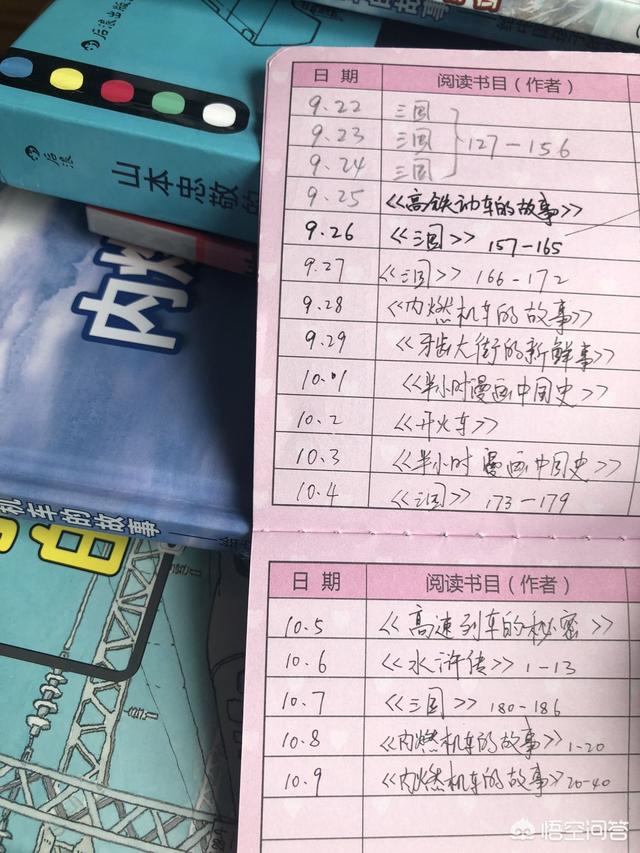 后浪出版
后浪
山本忠敬的
内燃
机车的故事
的故事
日 期 阅读书目(作者)
9.22 三国
9.23 三国 127-156
9.24 三国
9.25 《高铁动车的故事》
9.26 《三国》 157-165
9.27 《三国》 166-172
9.28 《内燃机车的故事》
9.29 《牙齿大街的新鲜事》
10.1 《半小时漫画中国史》
10.2 《开火车》
10.3 《半小时漫画中国史》
10.4 《三国》 173-179
日 期 阅读书目(作者)
10.5 《高速列车的秘密》
10.6 《水浒传》 1-13
10.7 《三国》 180-186
10.8 《内燃机车的故事》1-20
10.9 《内燃机车的故事》20-40
悟空问答